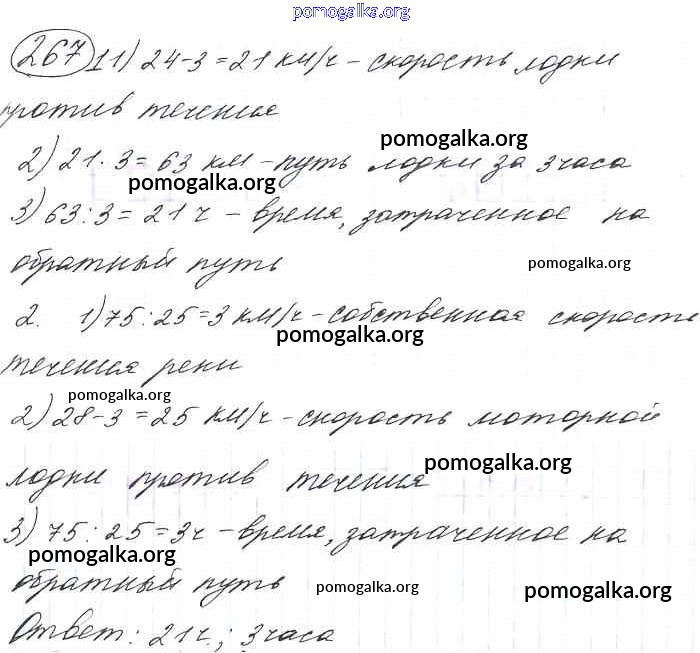 pomogalka.org
267 1 1) 24-3=21 км/ч - скорость лодки
против течения
pomogalka.org
2) 21·3=63 км - путь лодки за 3 часа
pomogalka.org
3) 63:3=21 ч - время, затраченное на
обратный путь
pomogalka.org
2. 1) 75:25=3 км/ч - собственная скорость
pomogalka.org
течения реки
pomogalka.org
2) 28-3=25 км/ч - скорость моторной
pomogalka.org
лодки против течения
3) 75:25=3ч - время, затраченное на
pomogalka.org
обратный путь
pomogalka.org
pomogalka.org
Ответ: 21ч.; 3 часа